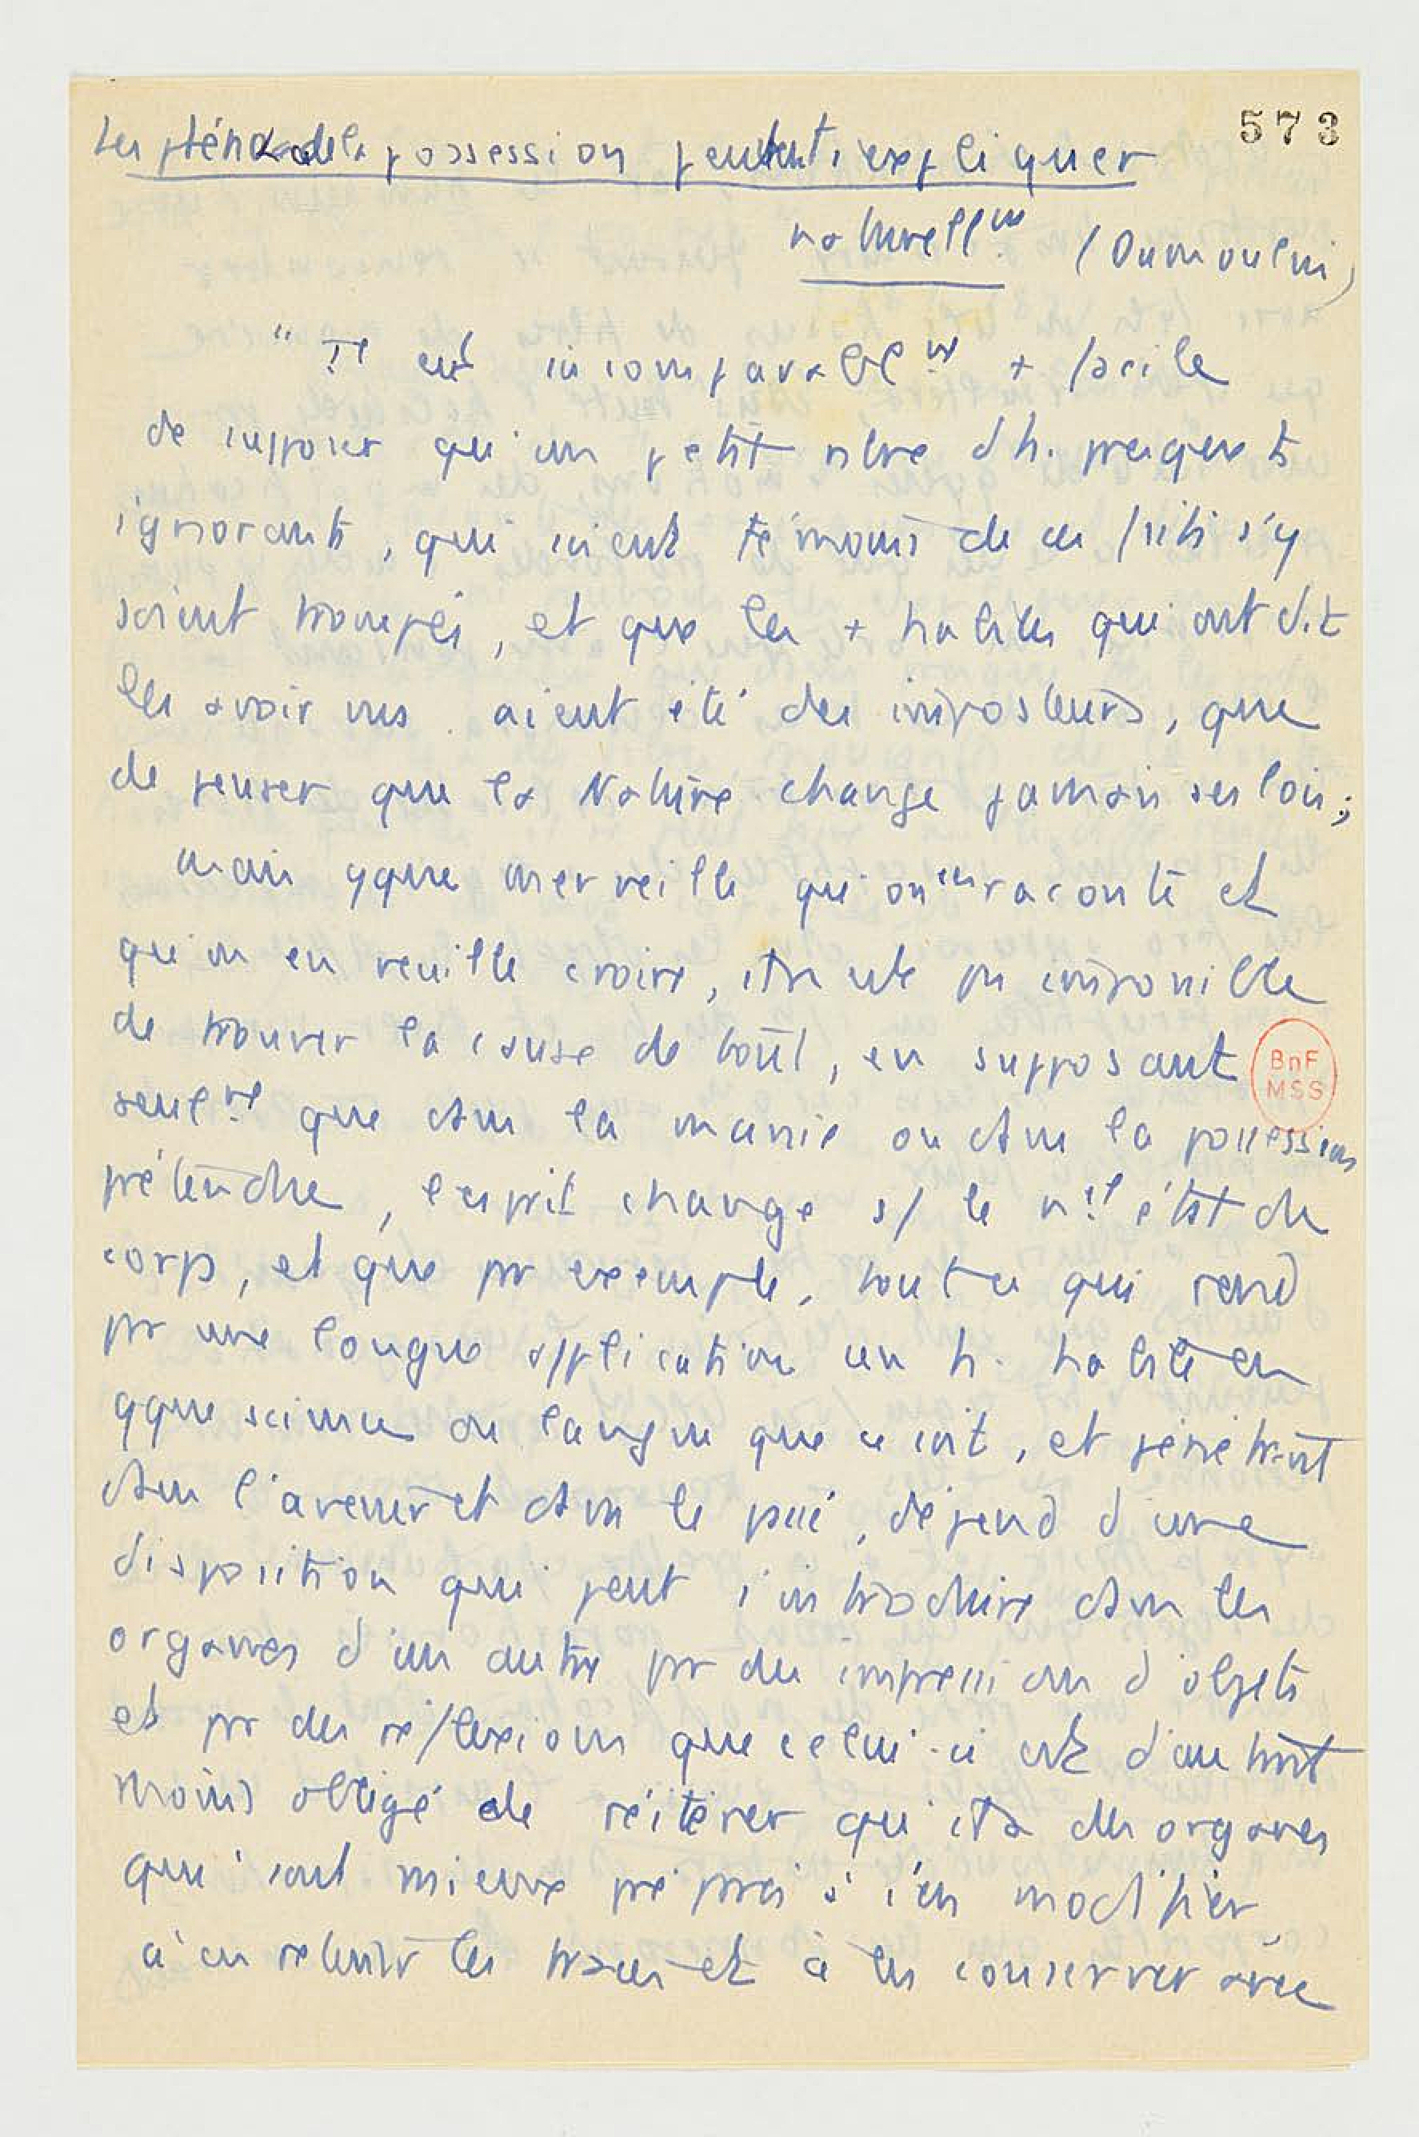 573
Les phén. de la possession peuvent s'expliquer
naturellmt (Dumoulin)
"Il est incomparablmt + facile
de supposer qu'un petit nbre d'h. presque ts
ignorants, qui soient témoins de ces faits s'y
soient trompés, et que les + habiles qui ont dit
les avoir vus aient été des imposteurs, que
de penser que la Nature change jamais ses lois;
mais qque merveille qu'on en raconte et
qu'on en veuille croire, il n'est pas impossible
de trouver la cause de tout, en supposant
seulmt que dans la manie ou dans la possession
prétendue, l'esprit change s/ le nel état du
corps, et que par exemple, tout ce qui rend
par une longue application un h. habile en
qque science ou langue que ce soit, et pénétrant
dans l'avenir et dans le passé, dépend d'une
disposition qui peut s'introduire dans les
organes d'un autre par des impressions d'objets
et par des réflexions que celui-ci est d'autant
moins obligé de réitérer qu'il a des organes
qui sont mieux préparés à s'en modifier
à en retenir les traces et à les conserver avec
BnF
MSS